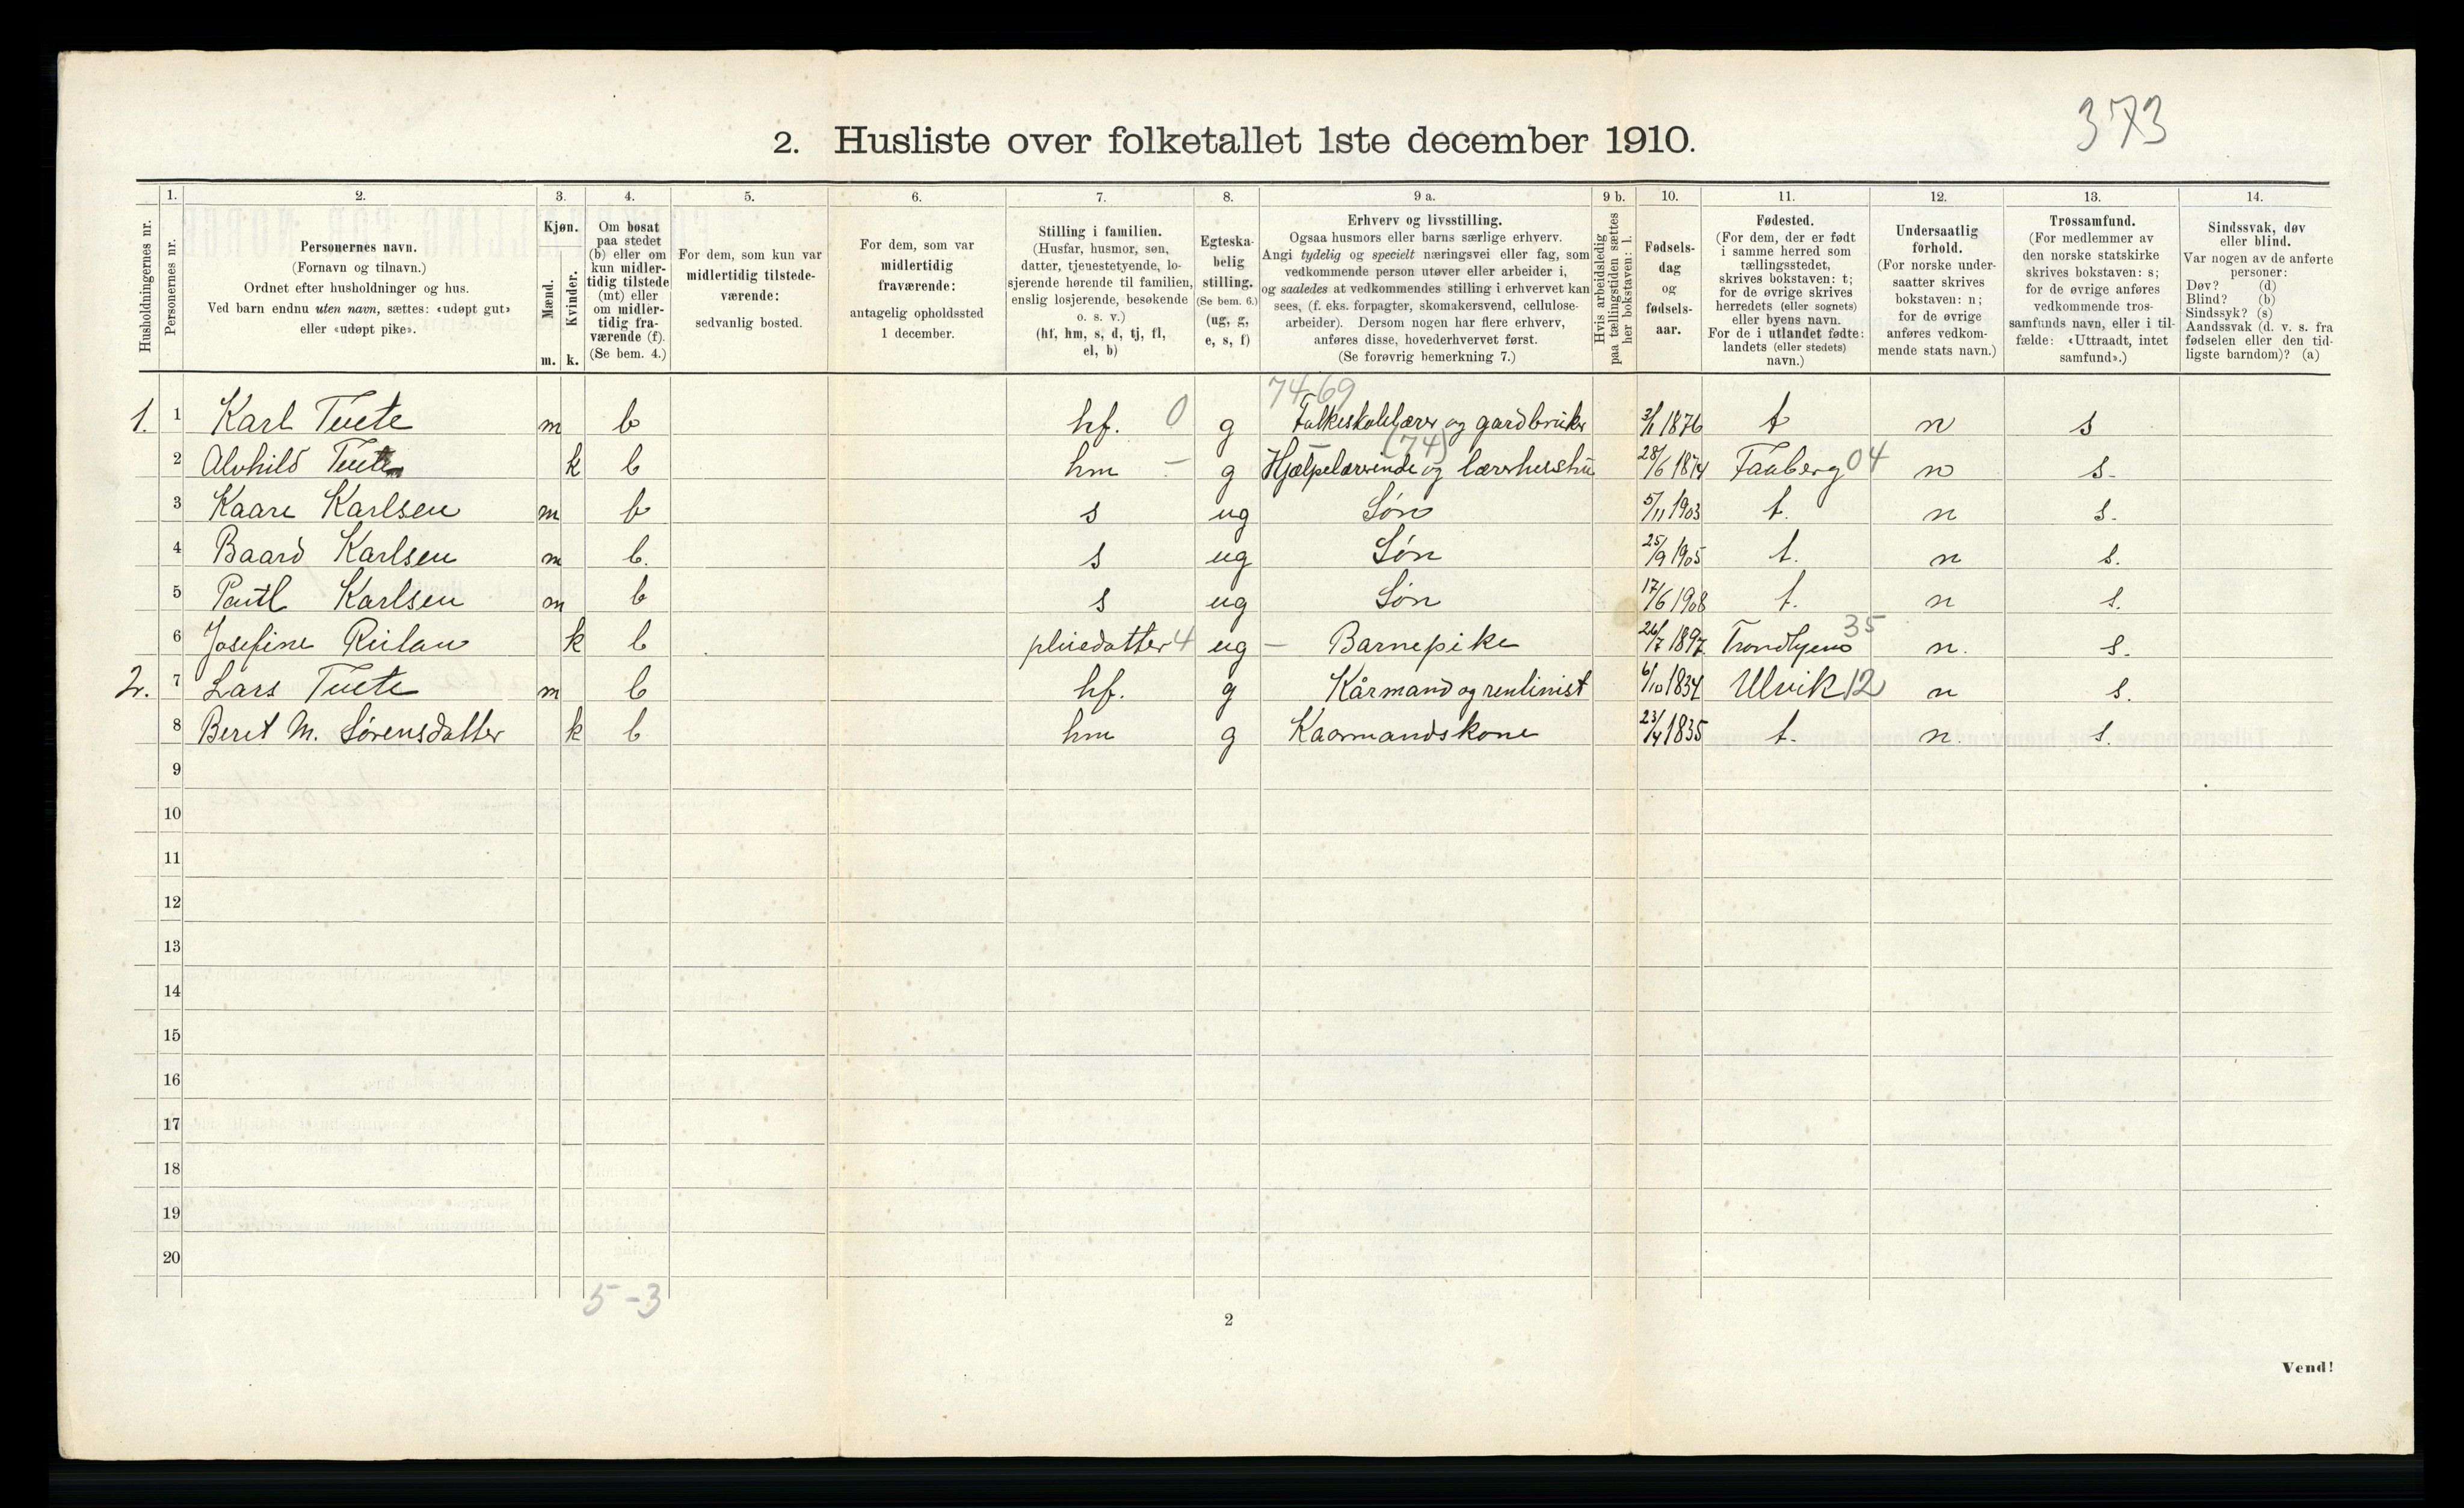 373
2. Husliste over folketallet 1ste december 1910.
Husholdningernes nr.
1. Personernes nr.
2. Personernes navn. (Fornavn og tilnavn.) Ordnet efter husholdninger og hus. Ved barn endnu uten navn, sættes: «udøpt gut» eller «udøpt pike».
3. Kjøn. Mænd. m. Kvinder. k.
4. Om bosat paa stedet (b) eller om kun midlertidig tilstede (mt) eller om midlertidig fraværende (f). (Se bem. 4.)
5. For dem, som kun var midlertidig tilstedeværende: sedvanlig bosted.
6. For dem, som var midlertidig fraværende: antagelig opholdssted 1 december.
7. Stilling i familien. (Husfar, husmor, søn, datter, tjenestetyende, losjerende hørende til familien, enslig losjerende, besøkende o. s. v.) (hf, hm, s, d, tj, fl, el, b)
8. Egteskabelig stilling. (Se bem. 6.) (ug, g, e, s, f)
9 a. Erhverv og livsstilling. Ogsaa husmors eller barns særlige erhverv. Angi tydelig og specielt næringsvei eller fag, som vedkommende person utøver eller arbeider i, og saaledes at vedkommendes stilling i erhvervet kan sees, (f. eks. forpagter, skomakersvend, cellulosearbeider). Dersom nogen har flere erhverv, anføres disse, hovederhvervet først. (Se forøvrig bemerkning 7.)
9 b. Hvis arbeidsledig paa tællingstiden sættes her bokstaven: l.
10. Fødselsdag og fødselsaar.
11. Fødested. (For dem, der er født i samme herred som tællingsstedet, skrives bokstaven: t; for de øvrige skrives herredets (eller sognets) eller byens navn. For de i utlandet fødte: landets (eller stedets) navn.)
12. Undersaatlig forhold. (For norske undersaatter skrives bokstaven: n; for de øvrige anføres vedkommende stats navn.)
13. Trossamfund. (For medlemmer av den norske statskirke skrives bokstaven: s; for de øvrige anføres vedkommende trossamfunds navn, eller i tilfælde: «Uttraadt, intet samfund».)
14. Sindssvak, døv eller blind. Var nogen av de anførte personer: Døv? (d) Blind? (b) Sindssyk? (s) Aandssvak (d. v. s. fra fødselen eller den tidligste barndom)? (a)
74-69
1. 1 Karl Tuete m b hf. 0 g Folkeskolelærer og gardbruker 3/1 1876 t n s
(74)
2 Alvhild Tuete k b hm - g Hjælpelærerinde og 28/6 1874 Faaberg 04 n s.
3 Kaare Karlsen m b s ug Søn 5/11 1903 t. n s.
4 Baard Karlsen m b. s ug Søn 25/9 1905 t. n s.
5 Poutl Karlsen m b s ug Søn 17/6 1908 t. n s.
6 Josefine k b pleiedatter 4 ug - Barnepike 26/7 1897 Trondhjem 35 n. s.
2. 7 Lars Tuete m b hf. g Kårmand og 6/10 1834 Ulvik 12 n s.
8 Beret M. Sørensdatter k b hm g Kaarmandskone 23/4 1835 t. n. s.
9
10
11
12
13
14
15
16
17
18
19
20
5-3
2
Vend!